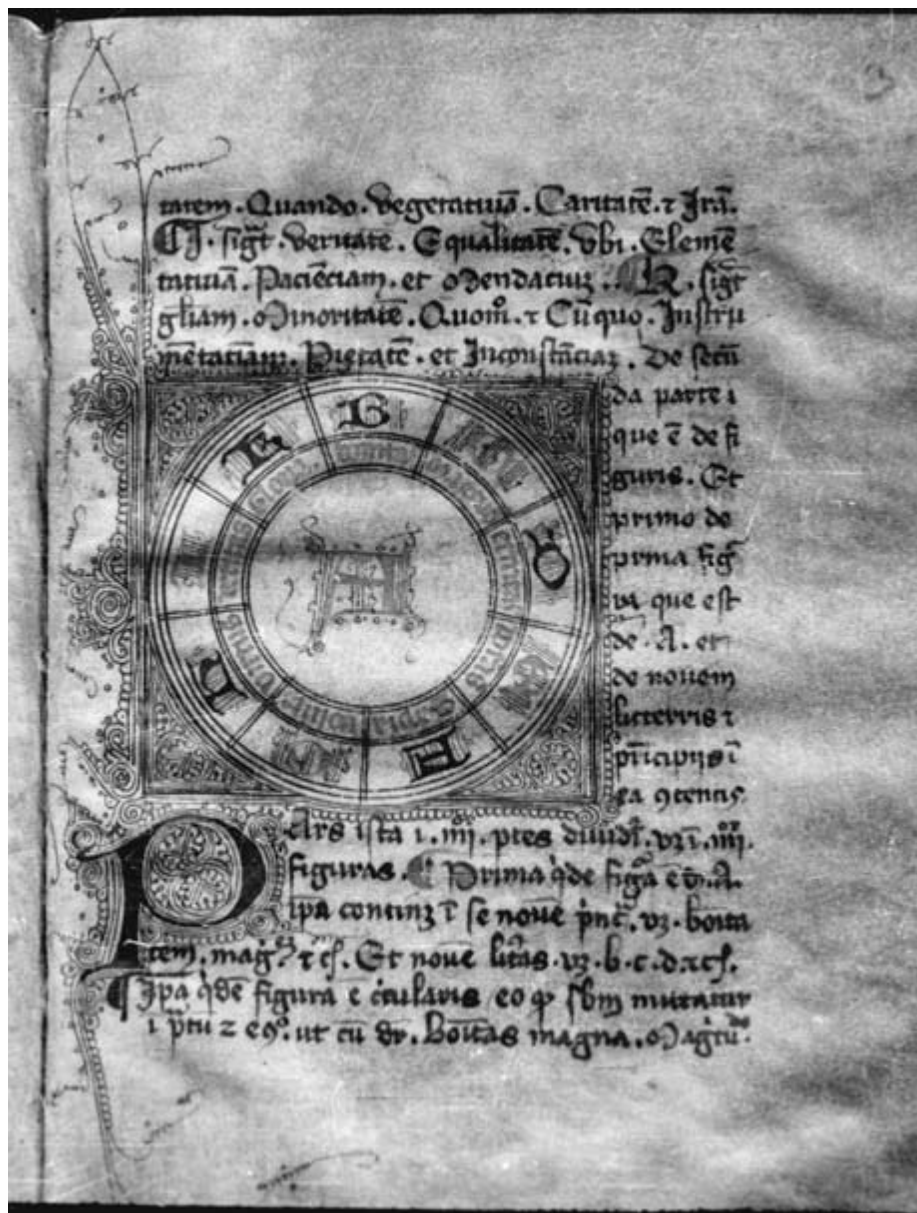 tatem. Quando. vegetatiuā. Caritatē. ⁊ Irā.
¶ I. sigt̄. veritatē. Equalitatē. vbi. Elemē
tatiuā. Paciēciam. et Mendaciuꝫ. ¶ K. sigt̄
gl̄iam. Minoritatē. Quom̊. ⁊ Cū quo. Instru
mētatiuam. Pietatē. et Inconstāciaꝫ. De secū
da parte ı
que ē de fi
guris. Et
primo de
prima fig
ra que est
de. A. et
de nouem
litterris ⁊
prīcipijs ī
ea ꝯtentis.
B
C
D
E
F
G
H
I
K
A
PArs ista ı. iiij. ptes diuidit̄. vꝫ ı. iiij.
figuras. ¶ Prima qͥde figͣa ē d. A.
ipa continꝫ ī se nouē pͥncͥ. vꝫ. boīta
tem. mag. ⁊ cͣ. Et nouē lr̄as. vꝫ. b. c. d. ⁊ cͣ.
¶ Ipa qͥdē figura ē cͥcularis eo ꝙ sb̄m mutatur
ı p̄tu ⁊ eꝯ. ut cū dr̄. Boīitas magna. Magͥtu